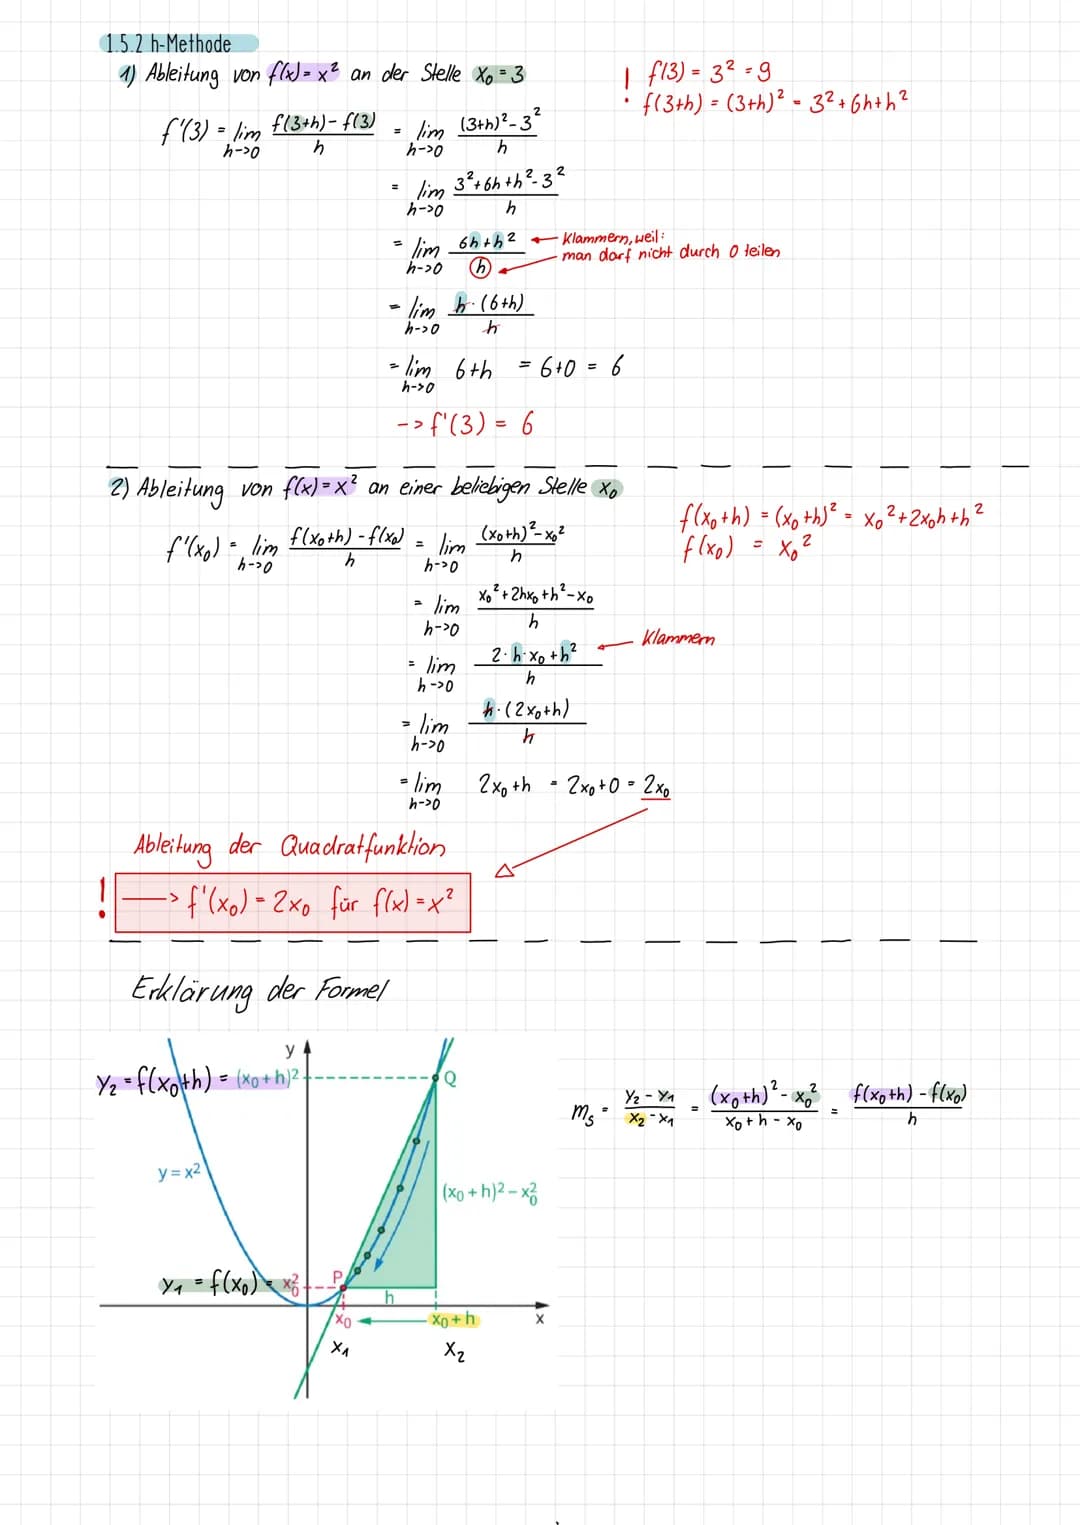 1.5.2 h-Methode
1) Ableitung von f(x)=x² an der Stelle x₀=3
! f(3) = 3² = 9
f(3+h) = (3+h)² = 3²+6h+h²
f'(3) = lim h->0 f(3+h)-f(3) / h = lim h->0 (3+h)²-3² / h
= lim h->0 3²+6h+h²-3² / h
= lim h->0 6h+h² / h ← Klammern, weil:
man darf nicht durch 0 teilen
= lim h->0 h·(6+h) / h
= lim h->0 6+h = 6+0 = 6
-> f'(3) = 6
2) Ableitung von f(x)=x² an einer beliebigen Stelle x₀
f(x₀+h) = (x₀+h)² = x₀²+2x₀h+h²
f(x₀) = x₀²
f'(x₀) = lim h->0 f(x₀+h)-f(x₀) / h = lim h->0 (x₀+h)²-x₀² / h
= lim h->0 x₀²+2hx₀+h²-x₀ / h
= lim h->0 2·h·x₀+h² / h ← Klammern
= lim h->0 h·(2x₀+h) / h
= lim h->0 2x₀+h = 2x₀+0 = 2x₀
Ableitung der Quadratfunktion
! —> f'(x₀) = 2x₀ für f(x)=x²
Erklärung der Formel
y
y₂ = f(x₀+h) = (x₀+h)² Q
mₛ = y₂-y₁ / x₂-x₁ = (x₀+h)²-x₀² / x₀+h-x₀ = f(x₀+h)-f(x₀) / h
y=x²
(x₀+h)²-x₀²
y₁ = f(x₀) = x₀² P
h
x₀ x₀+h x
x₁ x₂